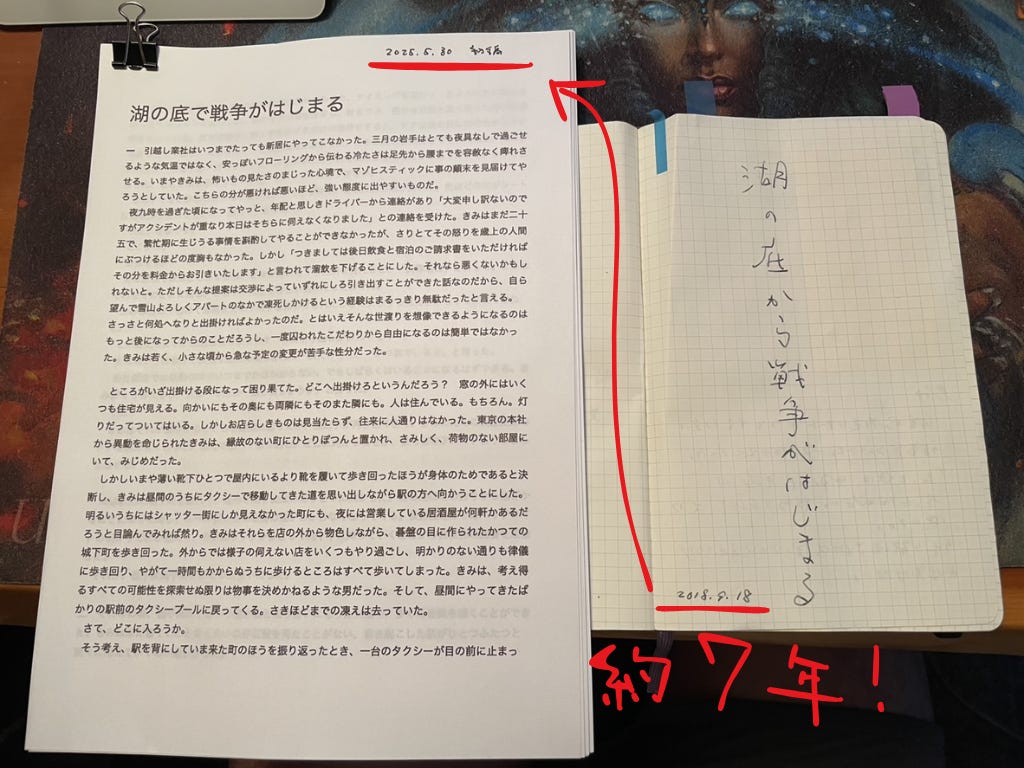 2025.5.30 初稿
湖の底で戦争がはじまる
一 引越し業社はいつまでたっても新居にやってこなかった。三月の岩手はとても夜具なしで過ごせ
るような気温ではなく、安っぽいフローリングから伝わる冷たさは足先から腰までを容赦なく痺れさ
せる。いまやきみは、怖いもの見たさのまじった心境で、マゾヒスティックに事の顛末を見届けてや
ろうとしていた。こちらの分が悪ければ悪いほど、強い態度に出やすいものだ。
夜九時を過ぎた頃になってやっと、年配と思しきドライバーから連絡があり「大変申し訳ないので
すがアクシデントが重なり本日はそちらに伺えなくなりました」との連絡を受けた。きみはまだ二十
五で、繁忙期に生じうる事情を斟酌してやることができなかったが、さりとてその怒りを歳上の人間
にぶつけるほどの度胸もなかった。しかし「つきましては後日飲食と宿泊のご請求書をいただければ
その分を料金からお引きいたします」と言われて溜飲を下げることにした。それなら悪くないかもし
れないと。ただしそんな提案は交渉によっていずれにしろ引き出すことができた話なのだから、自ら
望んで雪山よろしくアパートのなかで凍死しかけるという経験はまるっきり無駄だったと言える。
さっさと何処へなりと出掛ければよかったのだ。とはいえそんな世渡りを想像できるようになるのは
もっと後になってからのことだろうし、一度囚われたこだわりから自由になるのは簡単ではなかっ
た。きみは若く、小さな頃から急な予定の変更が苦手な性分だった。
ところがいざ出掛ける段になって困り果てた。どこへ出掛けろというんだろう? 窓の外にはいく
つも住宅が見える。向かいにもその奥にも両隣にもそのまた隣にも。人は住んでいる。もちろん。灯
りだってついてはいる。しかしお店らしきものは見当たらず、往来に人通りはなかった。東京の本社
から異動を命じられたきみは、縁故のない町にひとりぽつんと置かれ、さみしく、荷物のない部屋に
いて、みじめだった。
しかしいまや薄い靴下ひとつで屋内にいるより靴を履いて歩き回ったほうが身体のためであると決
断し、きみは昼間のうちにタクシーで移動してきた道を思い出しながら駅の方へ向かうことにした。
明るいうちにはシャッター街にしか見えなかった町にも、夜には営業している居酒屋が何軒かあるだ
ろうと目論んでみれば然り。きみはそれらを店の外から物色しながら、碁盤の目に作られたかつての
城下町を歩き回った。外からでは様子の伺えない店をいくつもやり過ごし、明かりのない通りも律儀
に歩き回り、やがて一時間もかからぬうちに歩けるところはすべて歩いてしまった。きみは、考え得
るすべての可能性を探索せぬ限りは物事を決めかねるような男だった。そして、昼間にやってきたば
かりの駅前のタクシープールに戻ってくる。さきほどまでの凍えは去っていた。
さて、どこに入ろうか。
そう考え、駅を背にしていま来た町のほうを振り返ったとき、一台のタクシーが目の前に止まっ
湖の底から戦争がはじまる
2018.9.18
約7年!